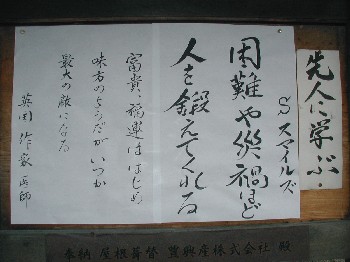 先人に学ぶ・
S スマイルズ
困難や災禍ほど
人を鍛えてくれる
富貴、福運ははじめ
味方のようだがいつか
最大の敵になる
英国 作家 医師
奉納 屋根葺替 豊興産株式会社 殿